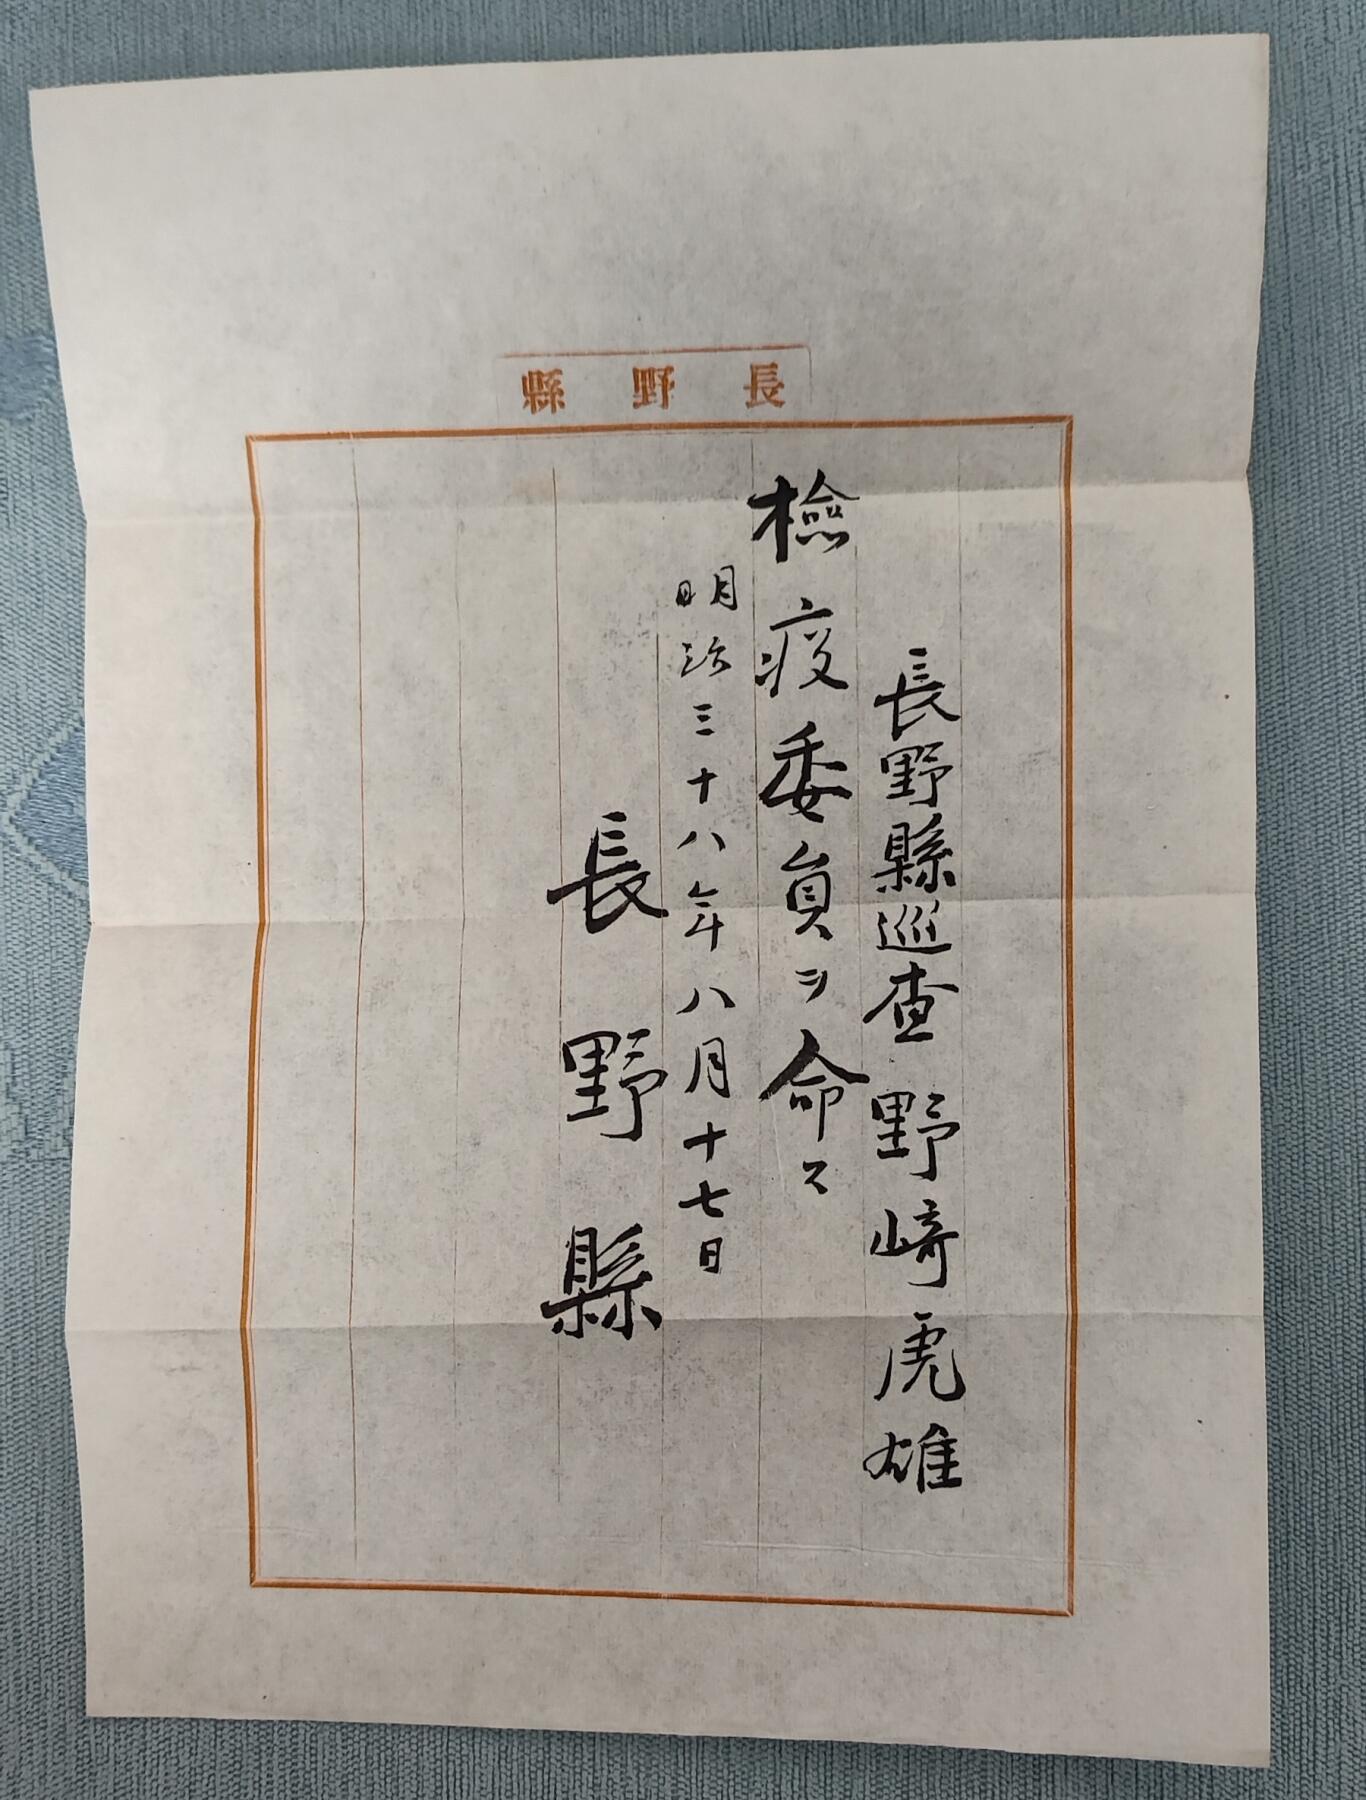 長野縣
長野縣巡査 野﨑虎雄
檢疫委員ヲ命ス
明治三十八年八月十七日
長野縣